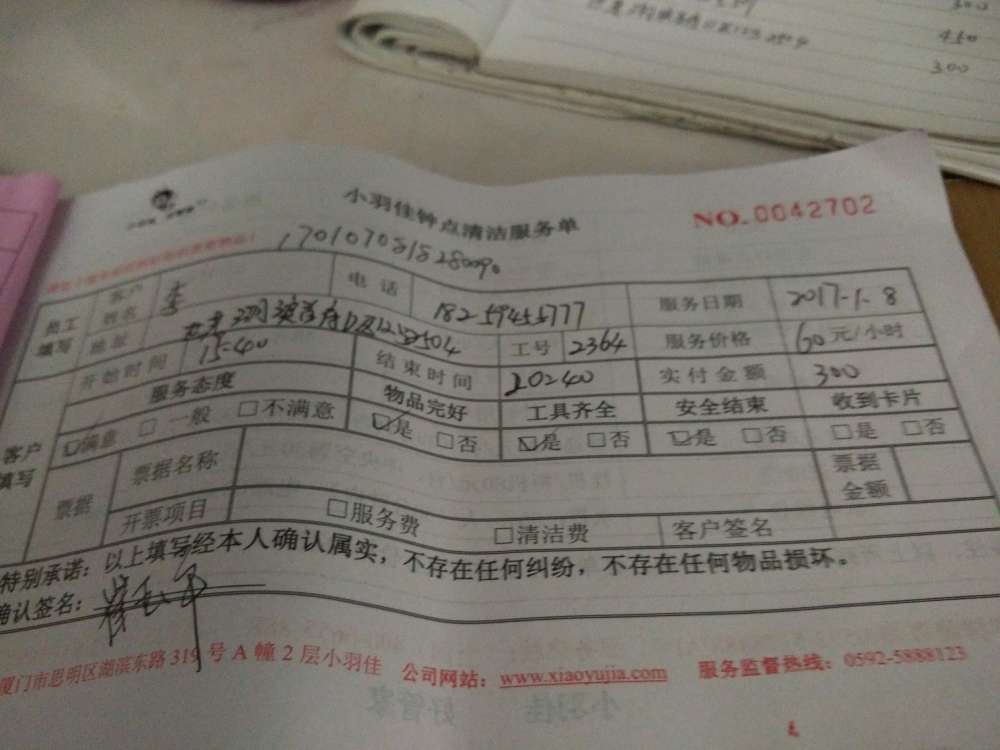 300
450
300
小羽佳钟点清洁服务单
NO.0042702
员工填写 客户姓名 李 电话 18259455777 服务日期 2017-1.8
地址 工号 2364 服务价格 60元/小时
开始时间 15:40 结束时间 20:40 实付金额 300
客户填写 服务态度 物品完好 工具齐全 安全结束 收到卡片
☑满意 □一般 □不满意 ☑是 □否 ☑是 □否 ☑是 □否 □是 □否
票据 票据名称 票据金额
开票项目 □服务费 □清洁费 客户签名
特别承诺：以上填写经本人确认属实，不存在任何纠纷，不存在任何物品损坏。
确认签名：
厦门市思明区湖滨东路319号A幢2层小羽佳 公司网站：www.xiaoyujia.com 服务监督热线：0592-5888123